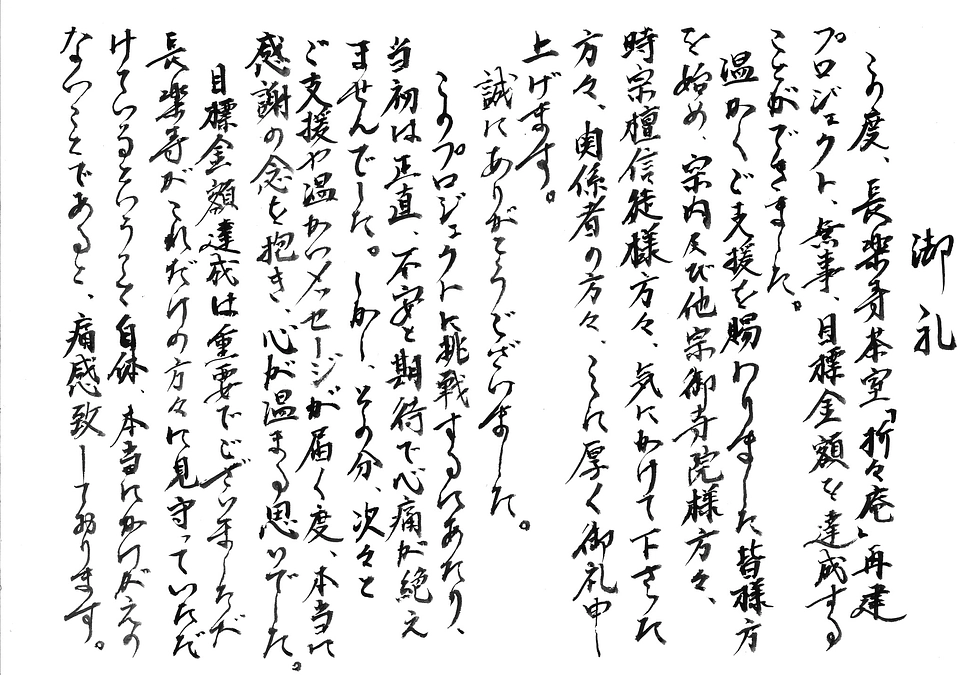 御礼
この度、長楽寺茶室「折々庵」再建
プロジェクト、無事、目標金額を達成する
ことができました。
温かくご支援を賜わりました皆様方
を始め、宗内及び他宗御寺院様方々、
時宗檀信徒様方々、気にかけて下さった
方々、関係者の方々、ここに厚く御礼申し
上げます。
誠にありがとうございました。
このプロジェクトに挑戦するにあたり、
当初は正直、不安と期待で心痛が絶え
ませんでした。しかし、その分、次々と
ご支援や温かいメッセージが届く度、本当に
感謝の念を抱き、心が温まる思いでした。
目標金額達成は重要でございましたが
長楽寺がこれだけの方々に見守っていただ
けているということ自体、本当にかけがえの
ないことであると、痛感致しております。